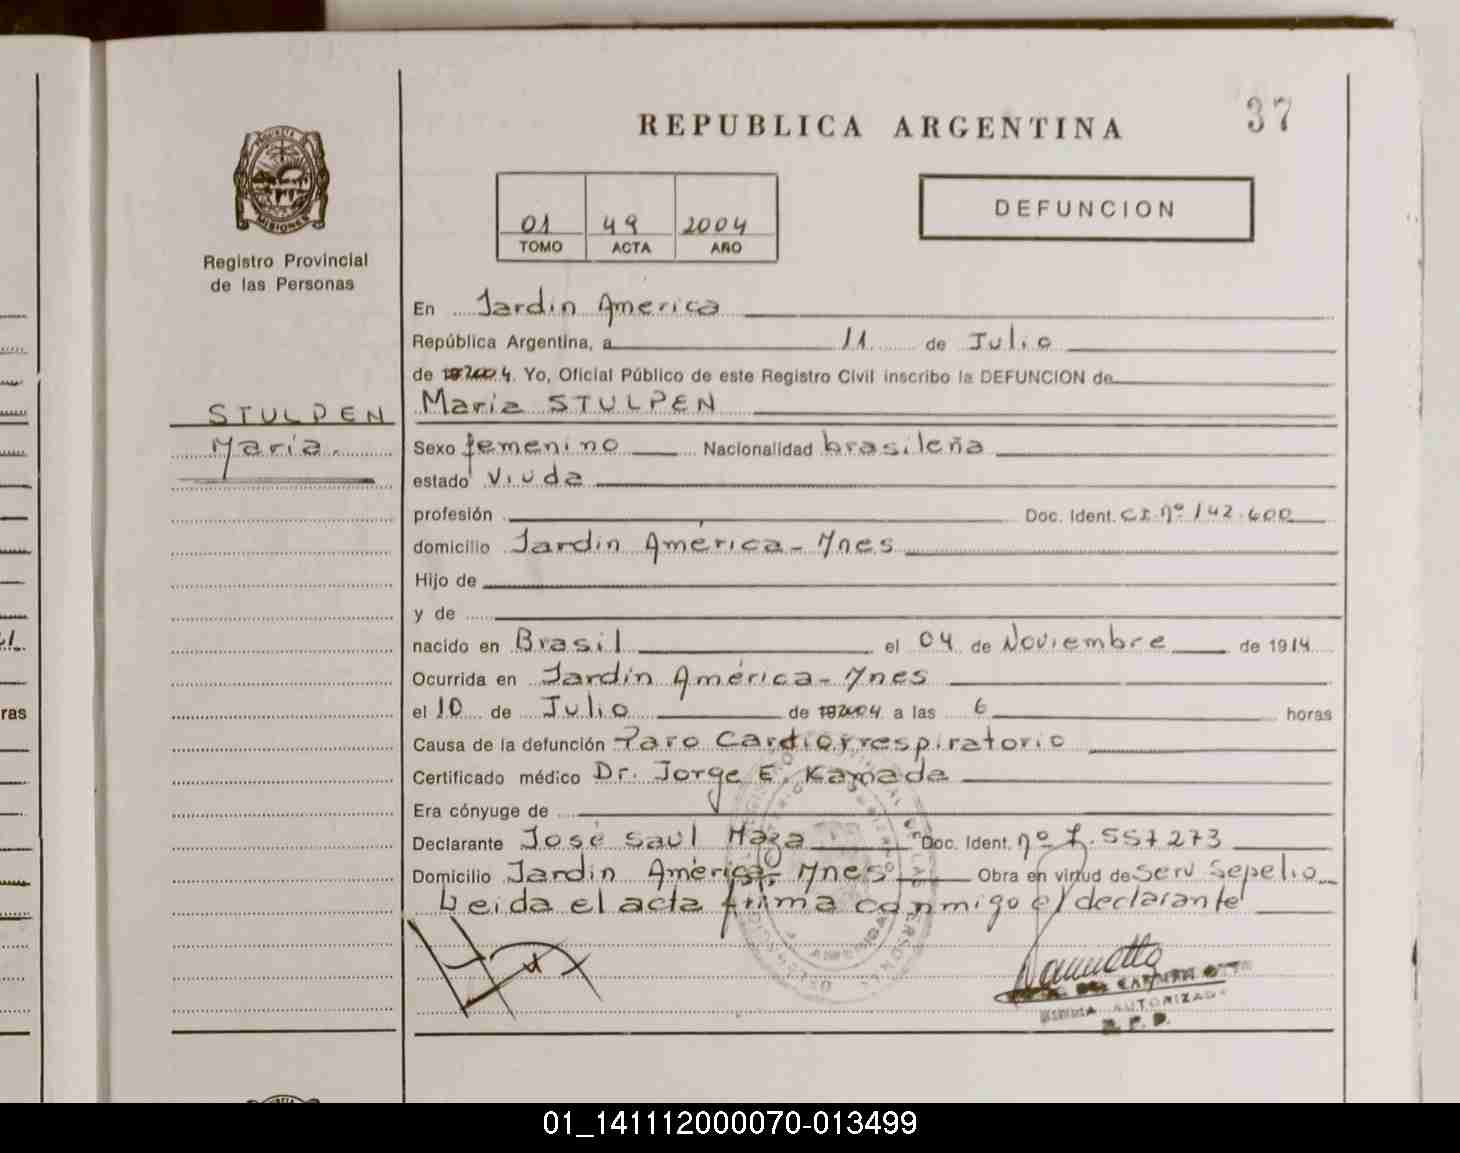 REPUBLICA ARGENTINA
37
MISIONES
Registro Provincial
de las Personas
01 49 2004
TOMO ACTA AÑO
DEFUNCION
STULPEN
María.
En Jardin America
República Argentina, a 11 de Julio
de 2004. Yo, Oficial Público de este Registro Civil inscribo la DEFUNCION de
Maria STULPEN
Sexo femenino Nacionalidad brasileña
estado Viuda
profesión Doc. Ident. C.I. nº 142.600
domicilio Jardin América - Mnes
Hijo de
y de
nacido en Brasil el 04 de Noviembre de 1914
Ocurrida en Jardin América - Mnes
el 10 de Julio de 2004 a las 6 horas
Causa de la defunción Paro Cardiorrespiratorio
Certificado médico Dr. Jorge E. Kamada
Era cónyuge de
Declarante José Saul Maza Doc. Ident. nº 7.557273
Domicilio Jardin América, Mnes Obra en virtud de Serv Sepelio
Leida el acta firma conmigo el declarante
AUTORIZADA
R. P. P.
ras
01_141112000070-013499